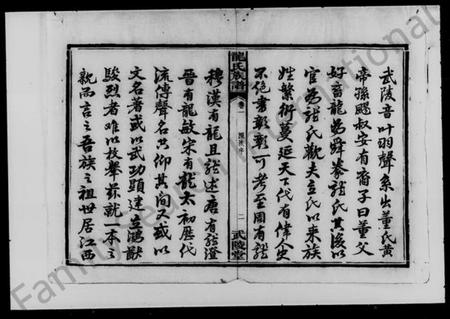 武陵音叶羽聲系出董氏黃
帝孫颺叔安有裔子曰董父
好音龍為舜豢龍氏其後以
官為龍氏歡夫立氏以來族
姓繁衍蔓延天下代有偉人史
不絕書彰彰可考至周有龍
龍氏族譜
卷一
二
武陵堂
穆漢有龍且龍述唐有龍澄
晉有龍敏宋有龍太初歷代
流傳聲名共仰其間又或以
文名著或以武功顯建立鴻猷
駿烈者难以枚舉茲就一本之
親而言之吾族之祖世居江西
Family International